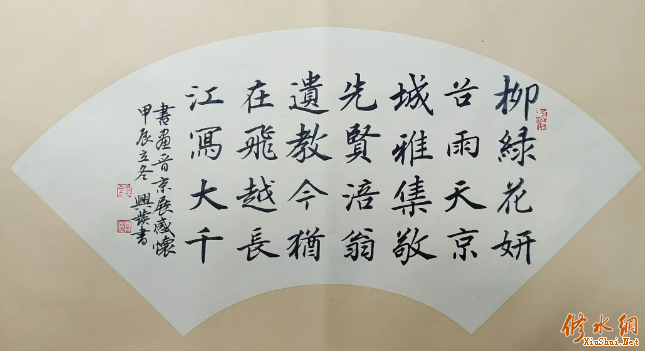 柳緑花妍
谷雨天京
城雅集敬
先賢涪翁
遺教今猶
在飛越長
江寫大千
書畫晋京展感懷
甲辰立冬
興義書
修水網
XiuShui.Net